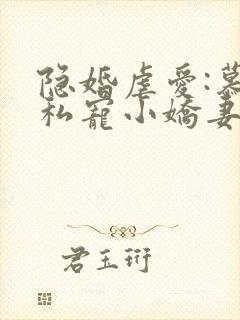 隐婚虐爱:慕
私宠小娇妻
君玉珩